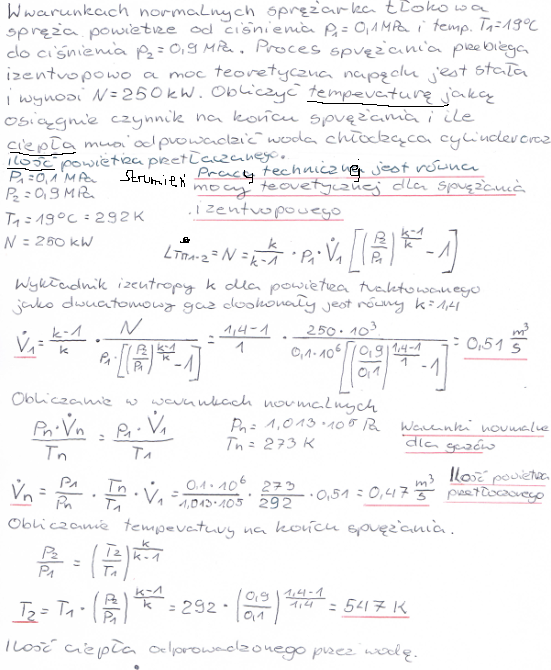 W warunkach normalnych sprężarka tłokowa
spręża powietrze od ciśnienia p₁=0,1MPa i temp. T₁=19°C
do ciśnienia p₂=0,9MPa. Proces sprężania przebiega
izentropowo a moc teoretyczna napędu jest stała
i wynosi N=250kW. Obliczyć temperaturę jaką
osiągnie czynnik na końcu sprężania i ile
ciepła musi odprowadzić woda chłodząca cylinder oraz
ilość powietrza przetłaczanego.
P₁=0,1MPa
P₂=0,9MPa
T₁=19°C=292K
N=250kW
Strumień Pracy technicznej jest równa
mocy teoretycznej dla sprężania
izentropowego
L̇Tm1-2 = N = k/(k-1) · p₁ · V̇₁ [(p₂/p₁)^((k-1)/k) - 1]
Wykładnik izentropy k dla powietrza traktowanego
jako dwuatomowy gaz doskonały jest równy k=1,4
V̇₁ = (k-1)/k · N/(p₁·[(p₂/p₁)^((k-1)/k) - 1]) = (1,4-1)/1 · 250·10³/(0,1·10⁶[(0,9/0,1)^((1,4-1)/1) - 1]) = 0,51 m³/s
Obliczanie w warunkach normalnych
Pn·V̇n/Tn = P₁·V̇₁/T₁
Pn=1,013·10⁵Pa
Tn=273K
Warunki normalne
dla gazów
V̇n = P₁/Pn · Tn/T₁ · V̇₁ = 0,1·10⁶/1,013·105 · 273/292 · 0,51 = 0,47 m³/s
Ilość powietrza
przetłoczonego
Obliczanie temperatury na końcu sprężania.
P₂/P₁ = (T₂/T₁)^(k/(k-1))
T₂ = T₁·(P₂/P₁)^((k-1)/k) = 292·(0,9/0,1)^((1,4-1)/1,4) = 547K
Ilość ciepła odprowadzonego przez wodę.